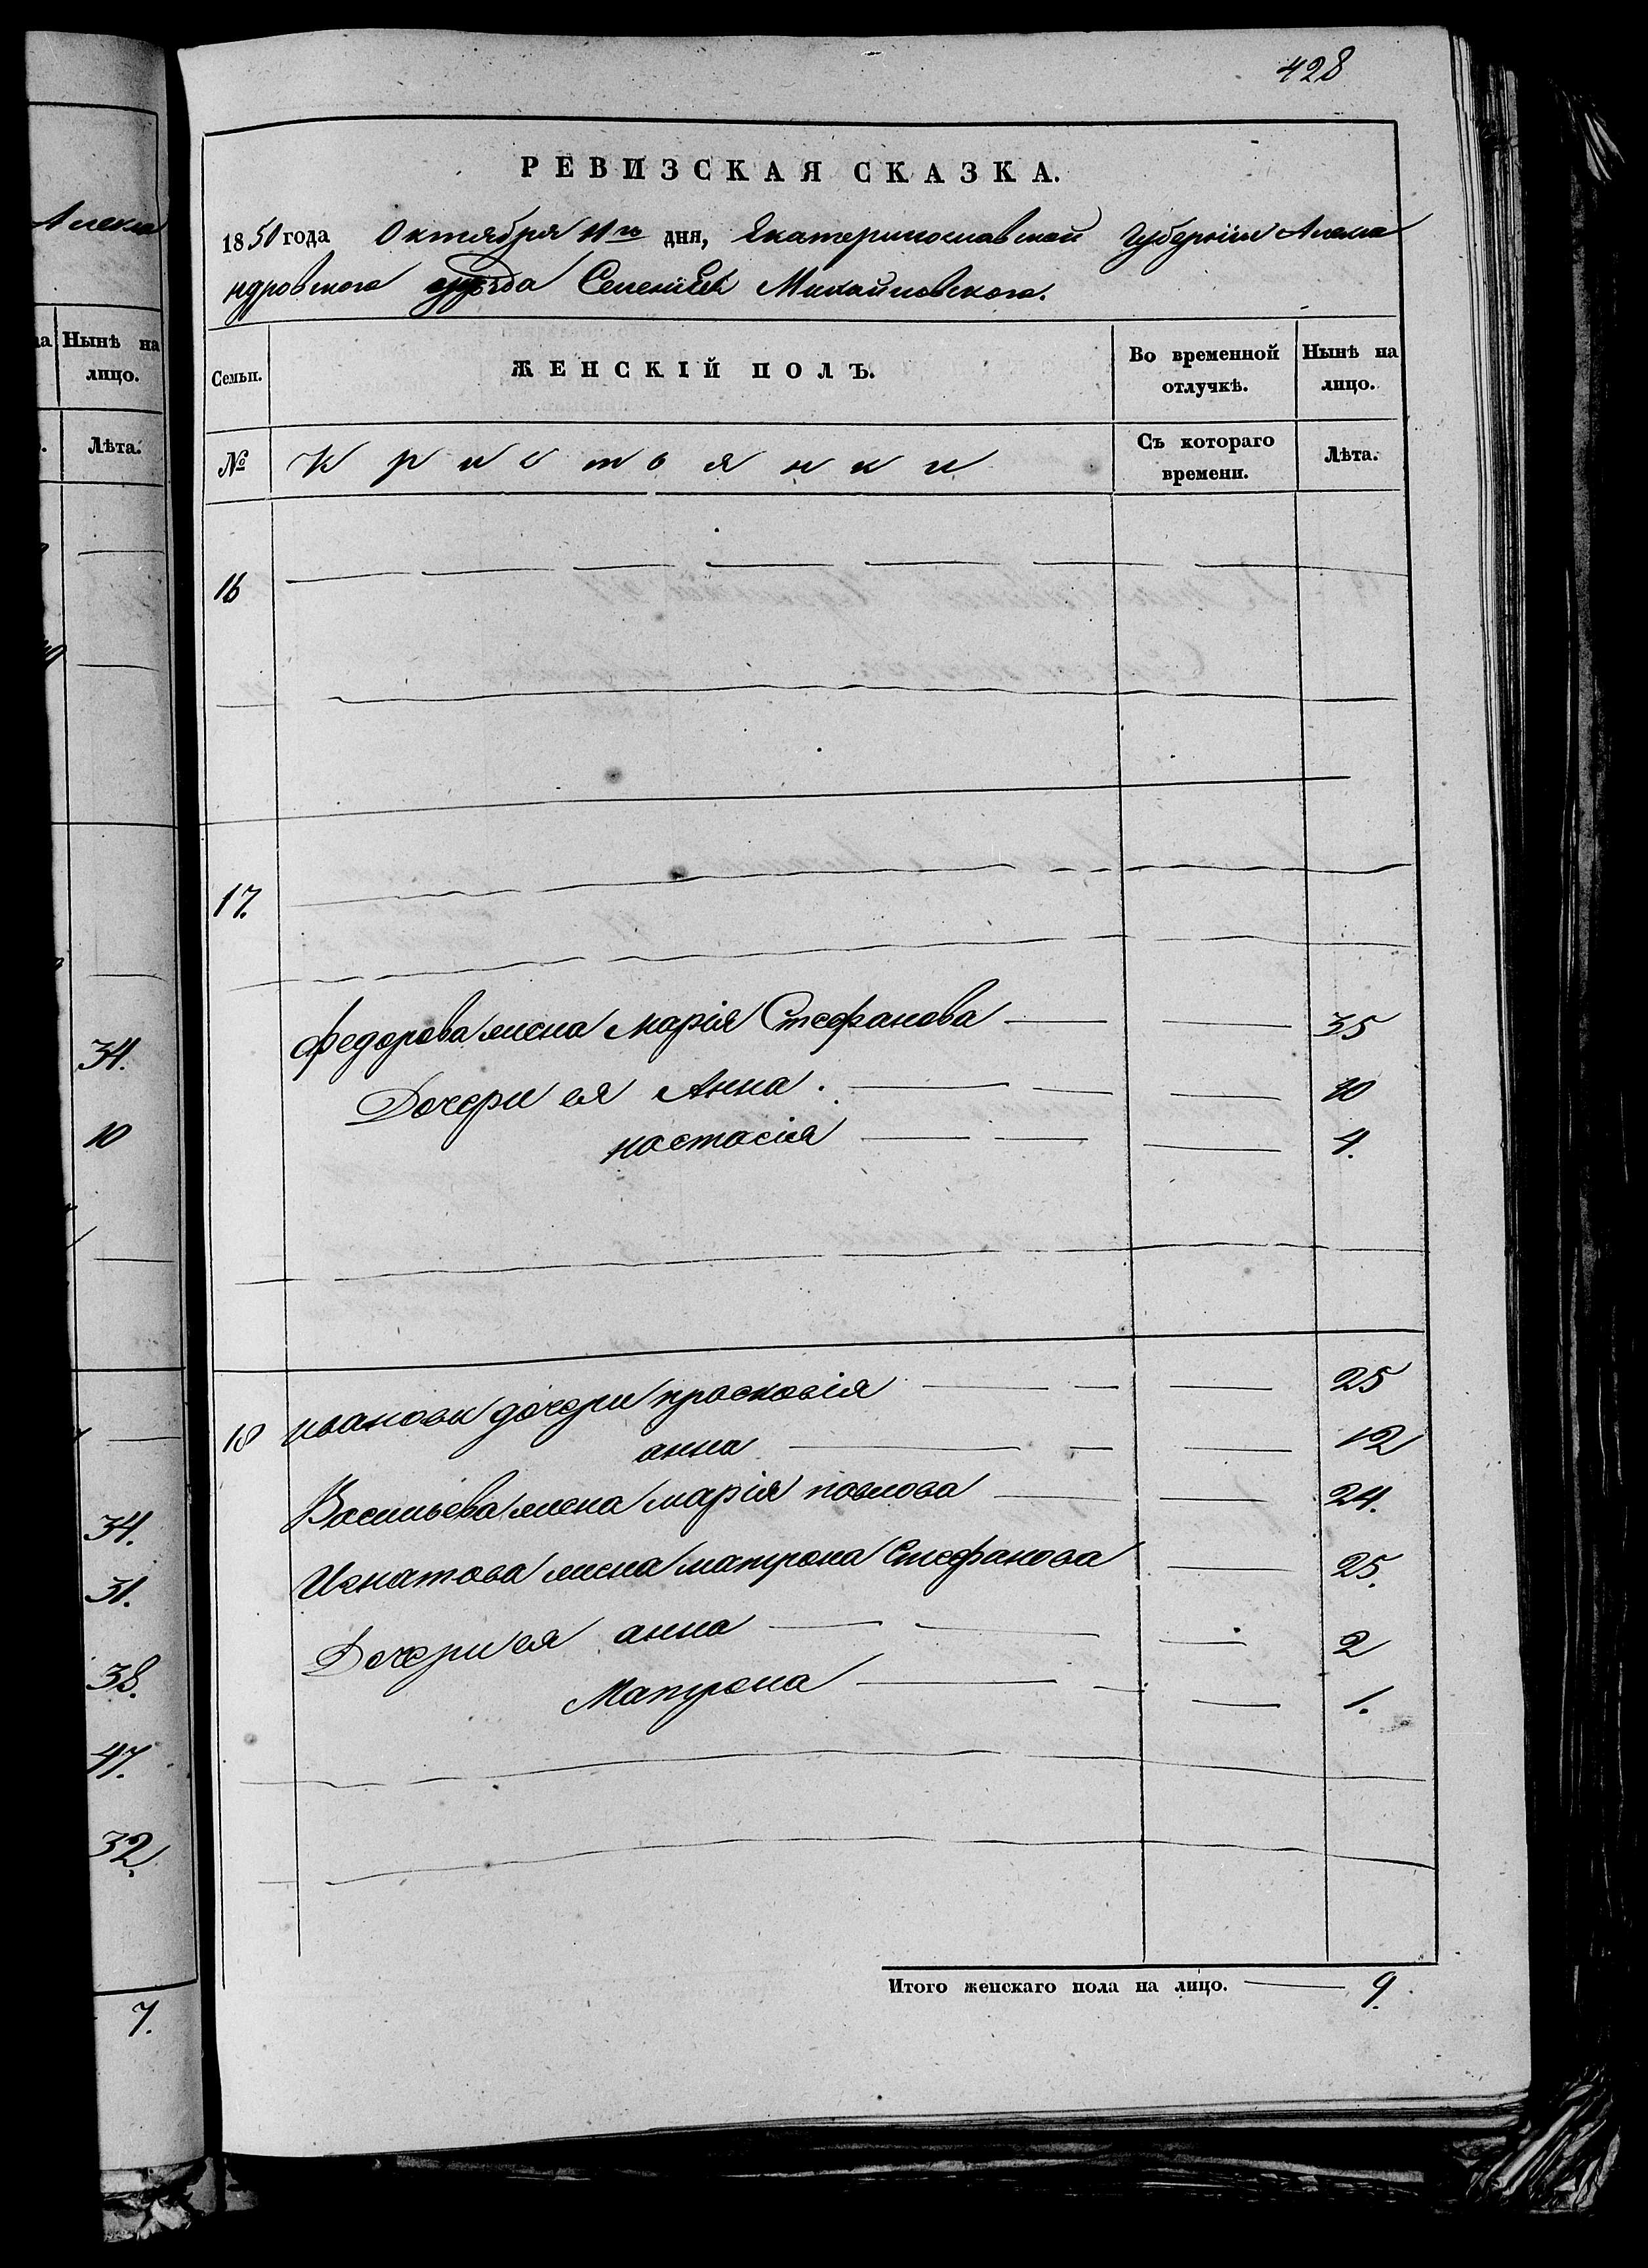 428
РЕВИЗСКАЯ СКАЗКА.
1850 года Октября 11го дня, Екатеринославской Губерніи Алекса
ндровского уезда Селенія Михайловского.
Семьи.
ЖЕНСКІЙ ПОЛЪ.
Во временной отлучкѣ.
Нынѣ на лицо.
№
Кристьянки
Съ котораго времени.
Лѣта.
16
17.
Федорова жена Марія Стефанова 35
Дочери ея Анна. 10
Настасія 4.
18 Ивановы дочери Прасковія 25
анна 12
Васильева жена марія павлова 24.
Игнатова жена матрона Стефанова 25.
Дочери ея анна 2
Матрона 1.
Итого женскаго пола на лицо. 9.
Алекса
Нынѣ на лицо.
Лѣта.
34.
10
34.
31.
38.
47.
32.
7.